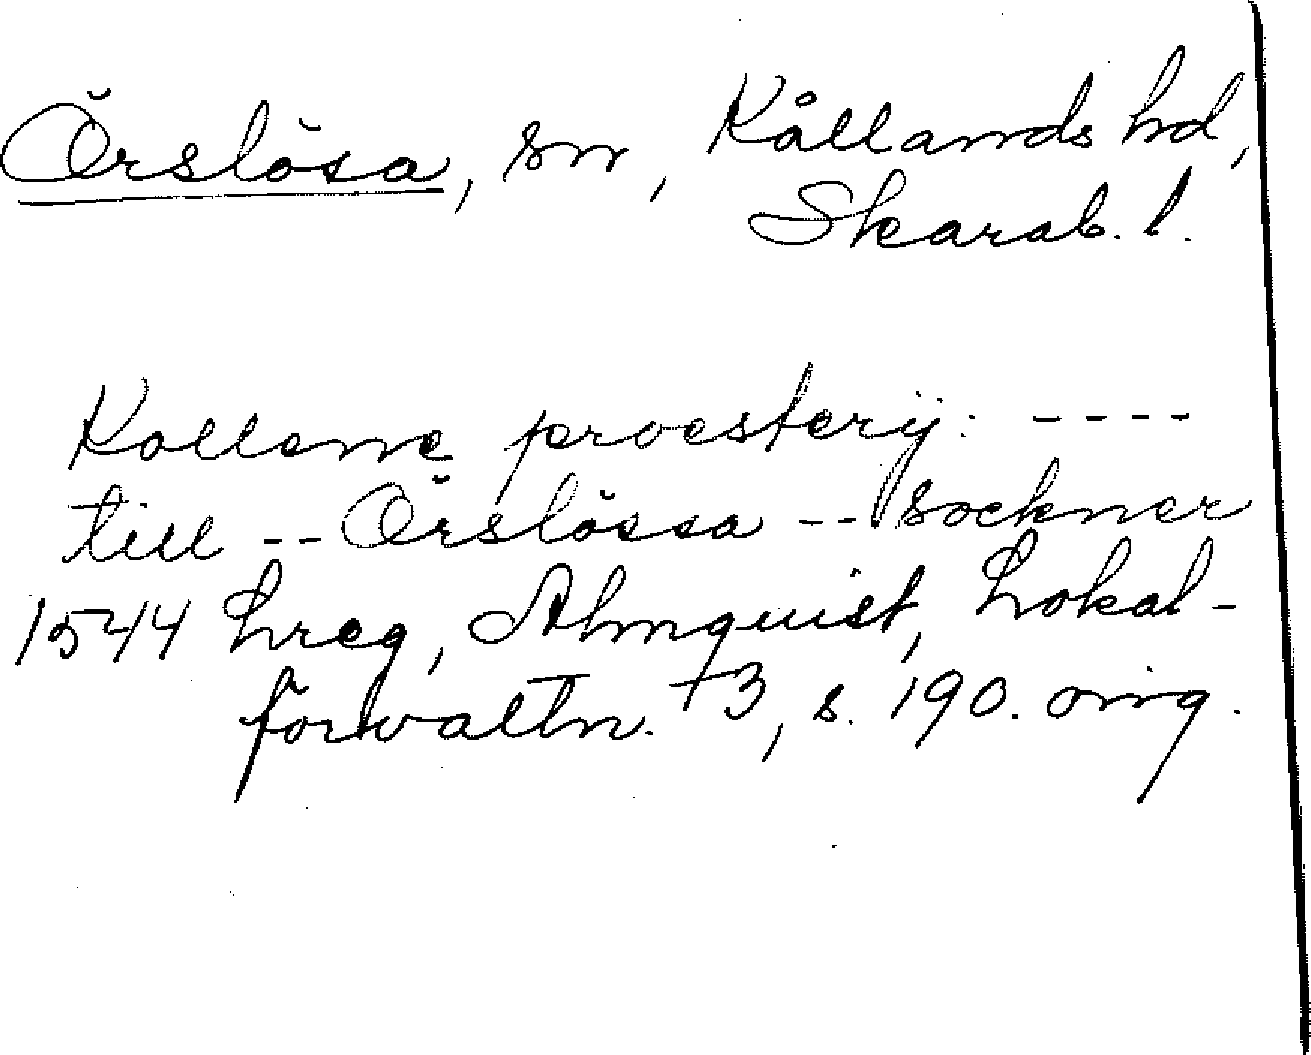 Örslösa, sn, Kållands hd,
Skarab. l.
Kollene proesterij: ----
till -- Örslössa -- sockner
1544 Lreg, Almquist, Lokal-
förvaltn. +3, s. 190. oing.